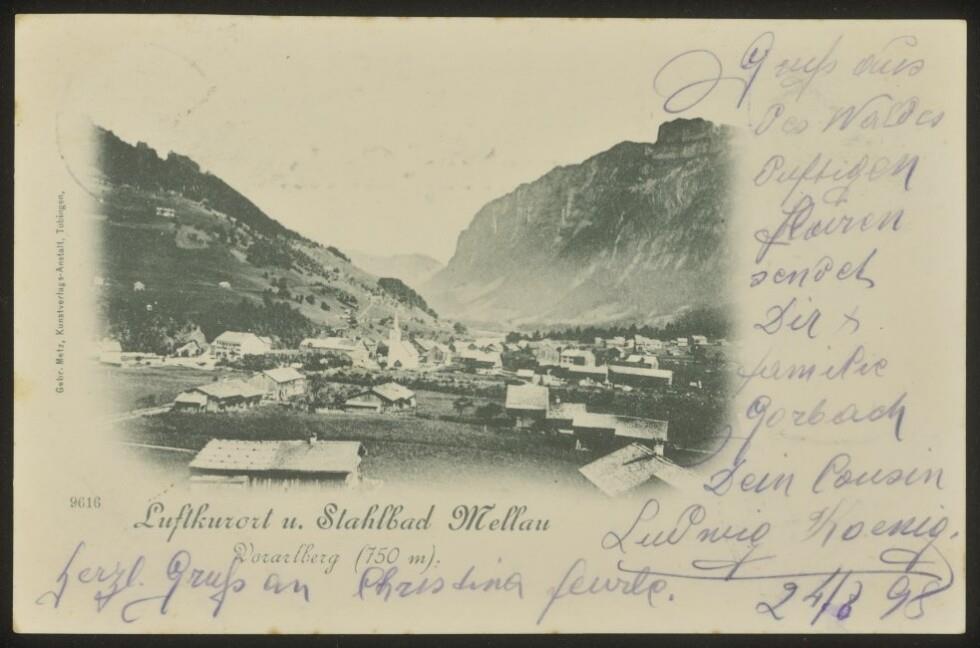 Gruß aus
des Waldes
duftigen
Fluren
sendet
Dir &
familie
Gorbach
Dein Cousin
Ludwig Koenig.
24/8 98
Gebr. Metz, Kunstverlags-Anstalt, Tübingen.
9616
Luftkurort u. Stahlbad Mellau
Vorarlberg (750 m).
herzl. Gruß an Christina